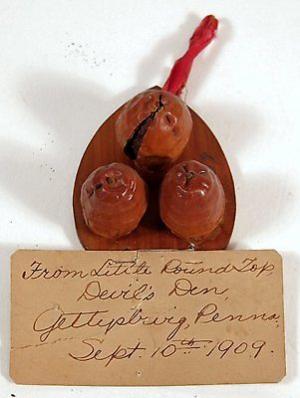 From Little Round Top,
Devil's Den,
Gettysburg, Penna,
Sept. 10th 1909.